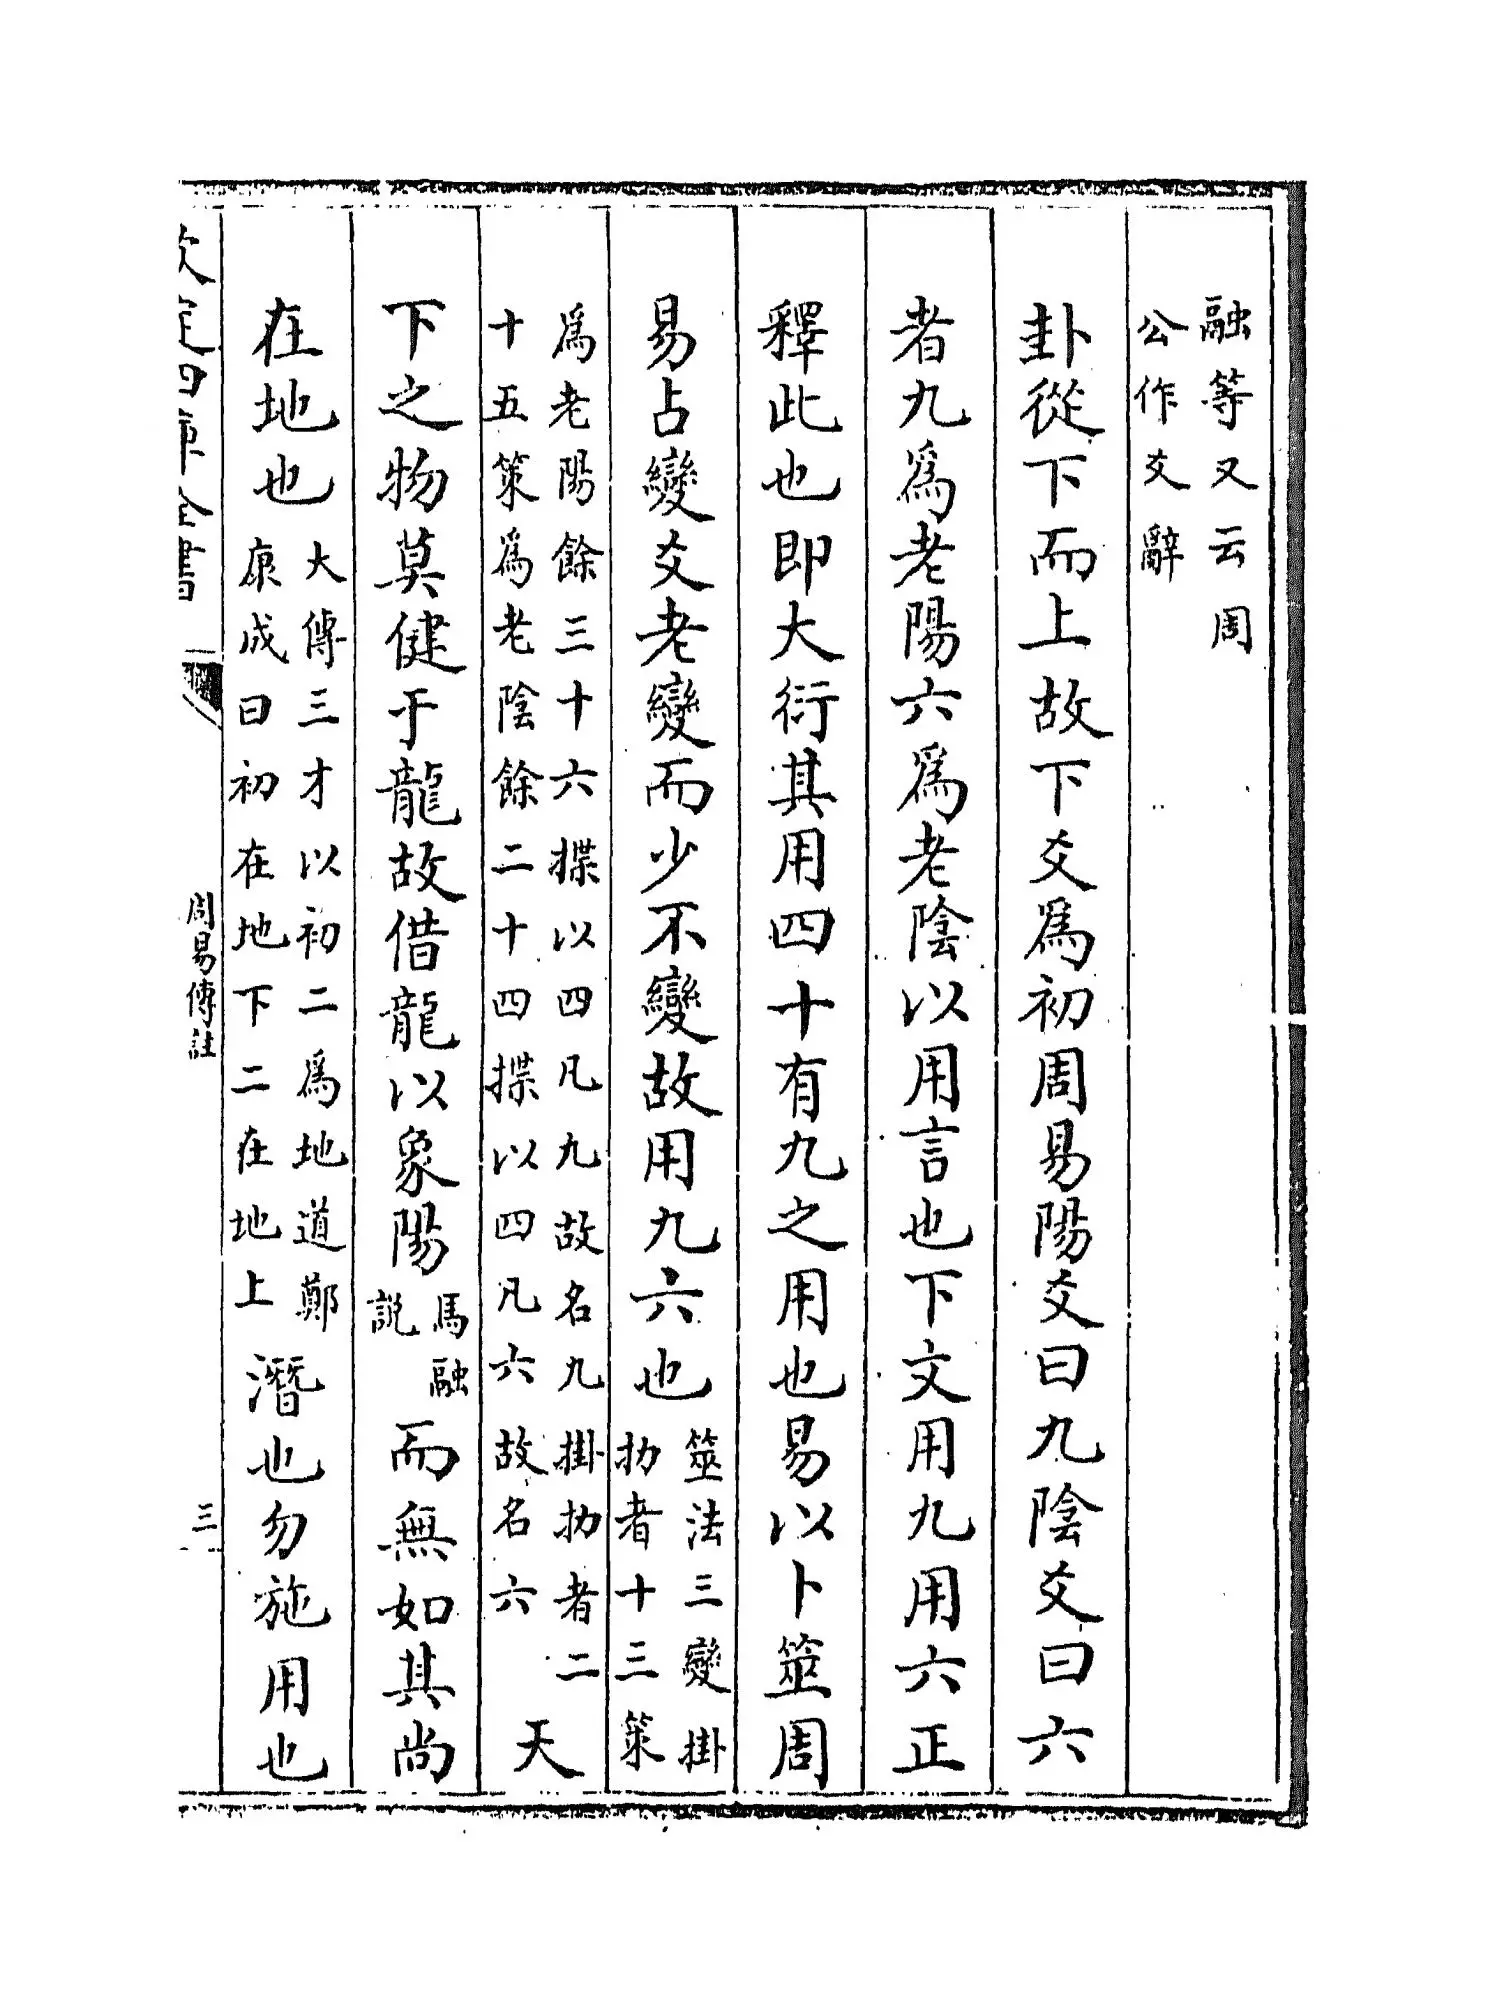 融等又云周
公作爻辭
卦從下而上故下爻爲初周易陽爻曰九陰爻曰六
者九爲老陽六爲老陰以用言也下文用九用六正
釋此也即大衍其用四十有九之用也易以卜筮周
易占變爻老變而少不變故用九六也
筮法三變掛
扐者十三策
爲老陽餘三十六揲以四凡九故名九掛扐者二
十五策爲老陰餘二十四揲以四凡六故名六
天
下之物莫健于龍故借龍以象陽
馬融
説
而無如其尚
在地也
大傳三才以初二爲地道鄭
康成曰初在地下二在地上
潛也勿施用也
欽定四庫全書
周易傳註
三